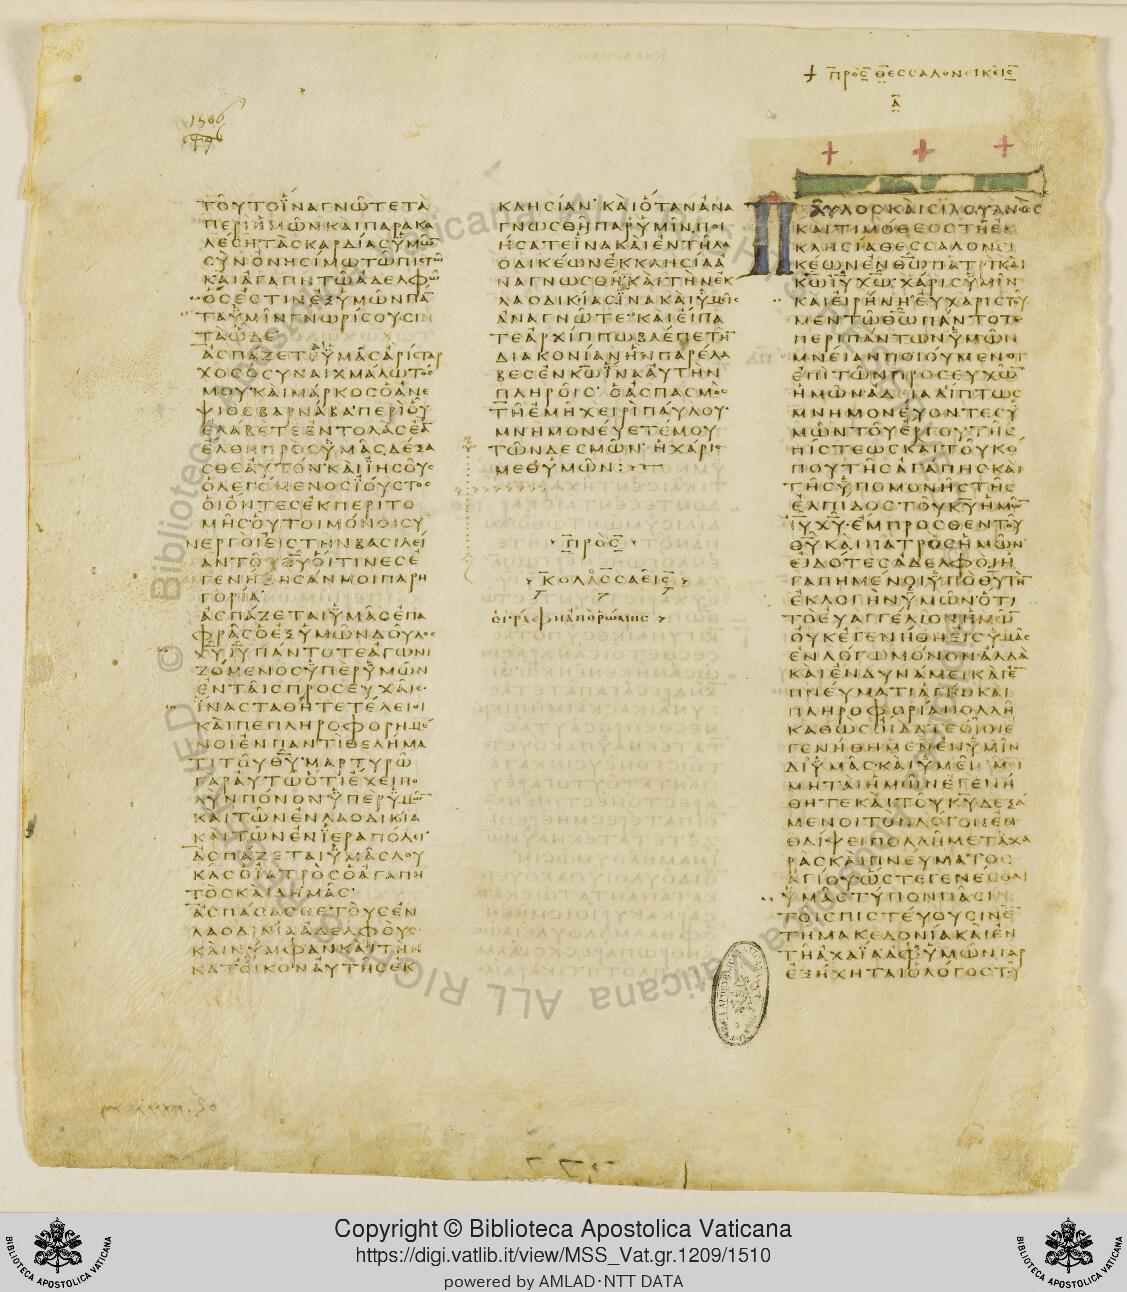 + ΠΡΟΣ ΘΕΣΣΑΛΟΝΕΙΚΕΙΣ
Α
1506
ΤΟΥΤΟΙΝΑΓΝΩΤΕΤΑ
ΠΕΡΙΗΜΩΝΚΑΙΠΑΡΑΚΑ
ΛΕΣΗΤΑΣΚΑΡΔΙΑΣΥΜΩ
ΣΥΝΟΝΗΣΙΜΩΤΩΠΙΣΤΩ
ΚΑΙΑΓΑΠΗΤΩΑΔΕΛΦΩ
ΟΣΕΣΤΙΝΕΞΥΜΩΝΠΑ
ΤΑΥΜΙΝΓΝΩΡΙΣΟΥΣΙΝ
ΤΑΩΔΕ
ΑΣΠΑΖΕΤΑΙΥΜΑΣΑΡΙΣΤΑΡ
ΧΟΣΟΣΥΝΑΙΧΜΑΛΩΤΟΣ
ΜΟΥΚΑΙΜΑΡΚΟΣΟΑΝΕ
ΨΙΟΣΒΑΡΝΑΒΑΠΕΡΙΟΥ
ΕΛΑΒΕΤΕΕΝΤΟΛΑΣΕΑ
ΕΛΘΗΠΡΟΣΥΜΑΣΔΕΞΑ
ΣΘΕΑΥΤΟΝΚΑΙΙΗΣΟΥΣ
ΟΛΕΓΟΜΕΝΟΣΙΟΥΣΤΟΣ
ΟΙΟΝΤΕΣΕΚΠΕΡΙΤΟ
ΜΗΣΟΥΤΟΙΜΟΝΟΙΣΥ
ΝΕΡΓΟΙΕΙΣΤΗΝΒΑΣΙΛΕΙ
ΑΝΤΟΥΘΥΟΙΤΙΝΕΣΕ
ΓΕΝΗΘΗΣΑΝΜΟΙΠΑΡΗ
ΓΟΡΙΑ
ΑΣΠΑΖΕΤΑΙΥΜΑΣΕΠΑ
ΦΡΑΣΟΕΞΥΜΩΝΔΟΥΛΟΣ
ΧΥΙΥΠΑΝΤΟΤΕΑΓΩΝΙ
ΖΟΜΕΝΟΣΥΠΕΡΥΜΩΝ
ΕΝΤΑΙΣΠΡΟΣΕΥΧΑΙΣ
ΙΝΑΣΤΑΘΗΤΕΤΕΛΕΙΟΙ
ΚΑΙΠΕΠΛΗΡΟΦΟΡΗΜΕ
ΝΟΙΕΝΠΑΝΤΙΘΕΛΗΜΑ
ΤΙΤΟΥΘΥΜΑΡΤΥΡΩ
ΓΑΡΑΥΤΩΟΤΙΕΧΕΙΠΟ
ΛΥΝΠΟΝΟΝΥΠΕΡΥΜΩ
ΚΑΙΤΩΝΕΝΛΑΟΔΙΚΙΑ
ΚΑΙΤΩΝΕΝΙΕΡΑΠΟΛΕΙ
ΑΣΠΑΖΕΤΑΙΥΜΑΣΛΟΥ
ΚΑΣΟΙΑΤΡΟΣΟΑΓΑΠΗ
ΤΟΣΚΑΙΔΗΜΑΣ
ΑΣΠΑΣΑΣΘΕΤΟΥΣΕΝ
ΛΑΟΔΙΚΙΑΑΔΕΛΦΟΥΣ
ΚΑΙΝΥΜΦΑΝΚΑΙΤΗΝ
ΚΑΤΟΙΚΟΝΑΥΤΗΣΕΚ
ΚΛΗΣΙΑΝΚΑΙΟΤΑΝΑΝΑ
ΓΝΩΣΘΗΠΑΡΥΜΙΝΠΟΙ
ΗΣΑΤΕΙΝΑΚΑΙΕΝΤΗΛΑ
ΟΔΙΚΕΩΝΕΚΚΛΗΣΙΑΑ
ΝΑΓΝΩΣΘΗΚΑΙΤΗΝΕΚ
ΛΑΟΔΙΚΙΑΣΙΝΑΚΑΙΥΜΕΙΣ
ΑΝΑΓΝΩΤΕΚΑΙΕΙΠΑ
ΤΕΑΡΧΙΠΠΩΒΛΕΠΕΤΗ
ΔΙΑΚΟΝΙΑΝΗΝΠΑΡΕΛΑ
ΒΕΣΕΝΚΩΙΝΑΑΥΤΗΝ
ΠΛΗΡΟΙΣΟΑΣΠΑΣΜΟΣ
ΤΗΕΜΗΧΕΙΡΙΠΑΥΛΟΥ
ΜΝΗΜΟΝΕΥΕΤΕΜΟΥ
ΤΩΝΔΕΣΜΩΝΗΧΑΡΙΣ
ΜΕΘΥΜΩΝ
ΠΡΟΣ
ΚΟΛΑΣΣΑΕΙΣ
ΕΓΡΑΦΗΑΠΟΡΩΜΗΣ
ΠΑΥΛΟΣΚΑΙΣΙΛΟΥΑΝΟΣ
ΚΑΙΤΙΜΟΘΕΟΣΤΗΕΚ
ΚΛΗΣΙΑΘΕΣΣΑΛΟΝΕΙ
ΚΕΩΝΕΝΘΩΠΑΤΡΙΚΑΙ
ΚΩΙΥΧΩΧΑΡΙΣΥΜΙΝ
ΚΑΙΕΙΡΗΝΗΕΥΧΑΡΙΣΤΟΥ
ΜΕΝΤΩΘΩΠΑΝΤΟΤΕ
ΠΕΡΙΠΑΝΤΩΝΥΜΩΝ
ΜΝΕΙΑΝΠΟΙΟΥΜΕΝΟΙ
ΕΠΙΤΩΝΠΡΟΣΕΥΧΩ
ΗΜΩΝΑΔΙΑΛΙΠΤΩΣ
ΜΝΗΜΟΝΕΥΟΝΤΕΣΥ
ΜΩΝΤΟΥΕΡΓΟΥΤΗΣ
ΠΙΣΤΕΩΣΚΑΙΤΟΥΚΟ
ΠΟΥΤΗΣΑΓΑΠΗΣΚΑΙ
ΤΗΣΥΠΟΜΟΝΗΣΤΗΣ
ΕΛΠΙΔΟΣΤΟΥΚΥΗΜΩ
ΙΥΧΥΕΜΠΡΟΣΘΕΝΤΟΥ
ΘΥΚΑΙΠΑΤΡΟΣΗΜΩΝ
ΕΙΔΟΤΕΣΑΔΕΛΦΟΙΗ
ΓΑΠΗΜΕΝΟΙΥΠΟΘΥΤΗ
ΕΚΛΟΓΗΝΥΜΩΝΟΤΙ
ΤΟΕΥΑΓΓΕΛΙΟΝΗΜΩ
ΟΥΚΕΓΕΝΗΘΗΕΙΣΥΜΑΣ
ΕΝΛΟΓΩΜΟΝΟΝΑΛΛΑ
ΚΑΙΕΝΔΥΝΑΜΕΙΚΑΙΕ
ΠΝΕΥΜΑΤΙΑΓΙΩΚΑΙ
ΠΛΗΡΟΦΟΡΙΑΠΟΛΛΗ
ΚΑΘΩΣΟΙΔΑΤΕΟΙΟΙΕ
ΓΕΝΗΘΗΜΕΝΕΝΥΜΙΝ
ΔΙΥΜΑΣΚΑΙΥΜΕΙΣΜΙ
ΜΗΤΑΙΗΜΩΝΕΓΕΝΗ
ΘΗΤΕΚΑΙΤΟΥΚΥΔΕΞΑ
ΜΕΝΟΙΤΟΝΛΟΓΟΝΕΝ
ΘΛΙΨΕΙΠΟΛΛΗΜΕΤΑΧΑ
ΡΑΣΚΑΙΠΝΕΥΜΑΤΟΣ
ΑΓΙΟΥΩΣΤΕΓΕΝΕΣΘΑΙ
ΥΜΑΣΤΥΠΟΝΠΑΣΙΝ
ΤΟΙΣΠΙΣΤΕΥΟΥΣΙΝΕ
ΤΗΜΑΚΕΔΟΝΙΑΚΑΙΕΝ
ΤΗΑΧΑΙΑΑΦΥΜΩΝΓΑΡ
ΕΞΗΧΗΤΑΙΟΛΟΓΟΣΤΟΥ
Copyright © Biblioteca Apostolica Vaticana
https://digi.vatlib.it/view/MSS_Vat.gr.1209/1510
powered by AMLAD·NTT DATA
BIBLIOTECA APOSTOLICA VATICANA
BIBLIOTECA APOSTOLICA VATICANA